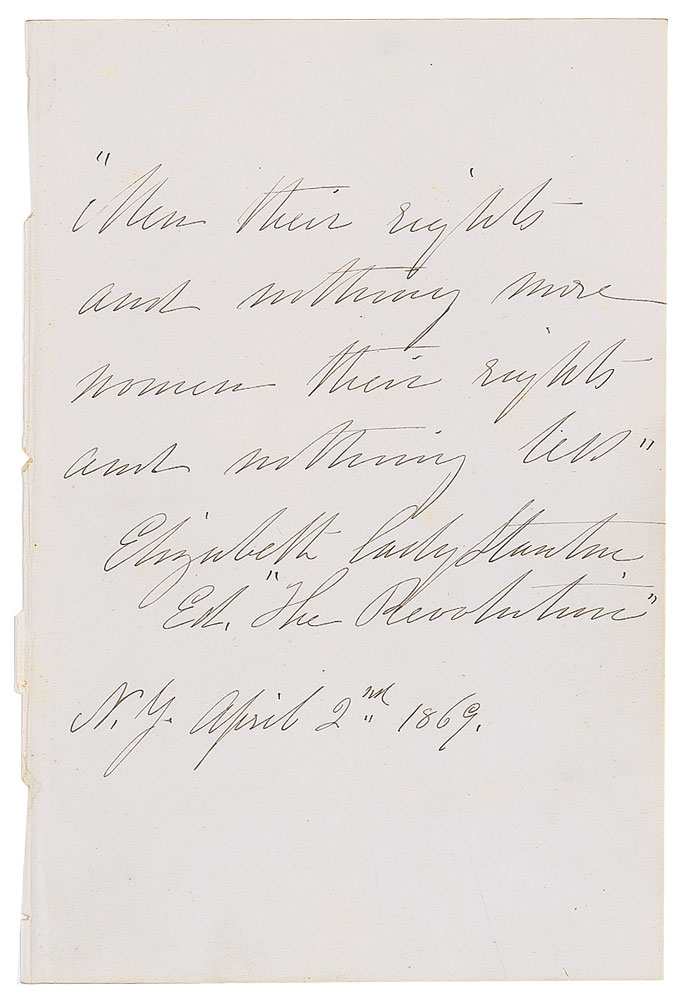 "Men their rights
and nothing more
women their rights
and nothing less"
Elizabeth Cady Stanton
Ed. "The Revolution"
N. Y. April 2nd 1869.